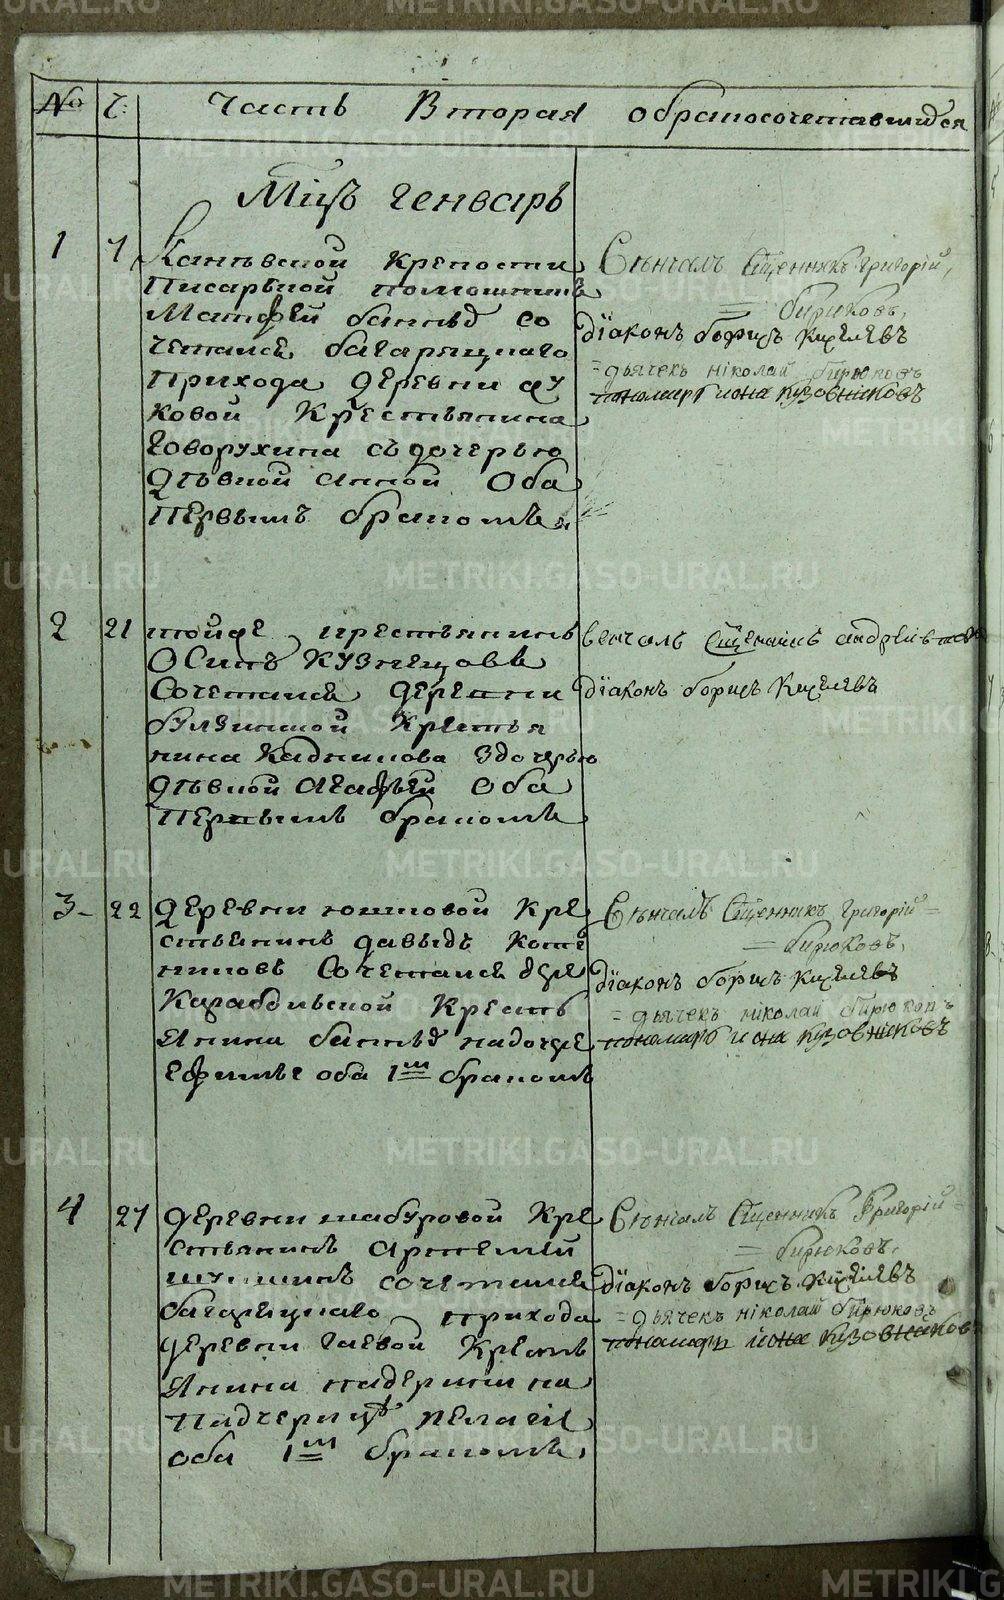 № Ч: Часть Вторая обракосочетавшихся
Мцъ генварь
1 7 Каневской крепости
Писарьной помошникъ
Матфей
сочетался багаряцкаго
Прихода деревни
ковой Крестьянина
говорухина съ дочерью
девкой анной Оба
Первымъ бракомъ
Венчалъ Сщенникъ григорій
= бирюковъ,
діаконъ борисъ Киселевъ
= дьячекъ ніколай бирюковъ
пономарь иона кузовниковъ
2 21 тойже крестьянинъ
Осипъ кузнецовъ
Сочетался деревни
булзинской Крестья
нина Кадникова здочерью
девкой агафьей Оба
Первымъ бракомъ
венчалъ Сщенникъ андрей
діаконъ борисъ Киселевъ
3 22 деревни юшковой Кре
стьянинъ давыдъ
сочетался дере
Карабольской Кресть
янина на дочере
Ефимье оба 1м бракомъ
Венчалъ Сщенникъ Григорій =
= бирюковъ,
діаконъ борисъ Киселевъ
= дьячекъ ніколай бирюковъ
пономарь иона кузовниковъ
4 27 деревни шабуровой Кре
стьянинъ Артемей
сочетался
багаряцкаго прихода
деревни гаевой Кресть
янина на
Падчерице пелагее
оба 1м бракомъ,
Венчалъ Сщенникъ Григорій =
= бирюковъ,
діаконъ борисъ Киселевъ
= дьячекъ ніколай бирюковъ
пономарь иона кузовниковъ
METRIKI.GASO-URAL.RU